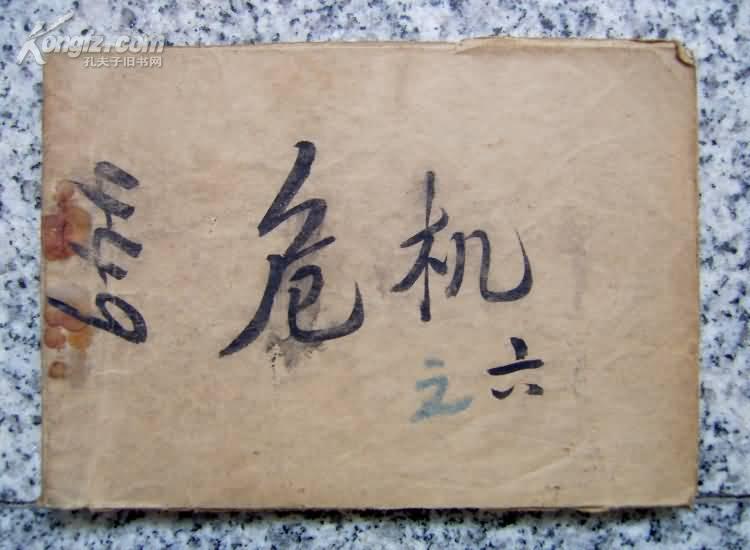 Kongfz.com
孔夫子旧书网
危机
之六